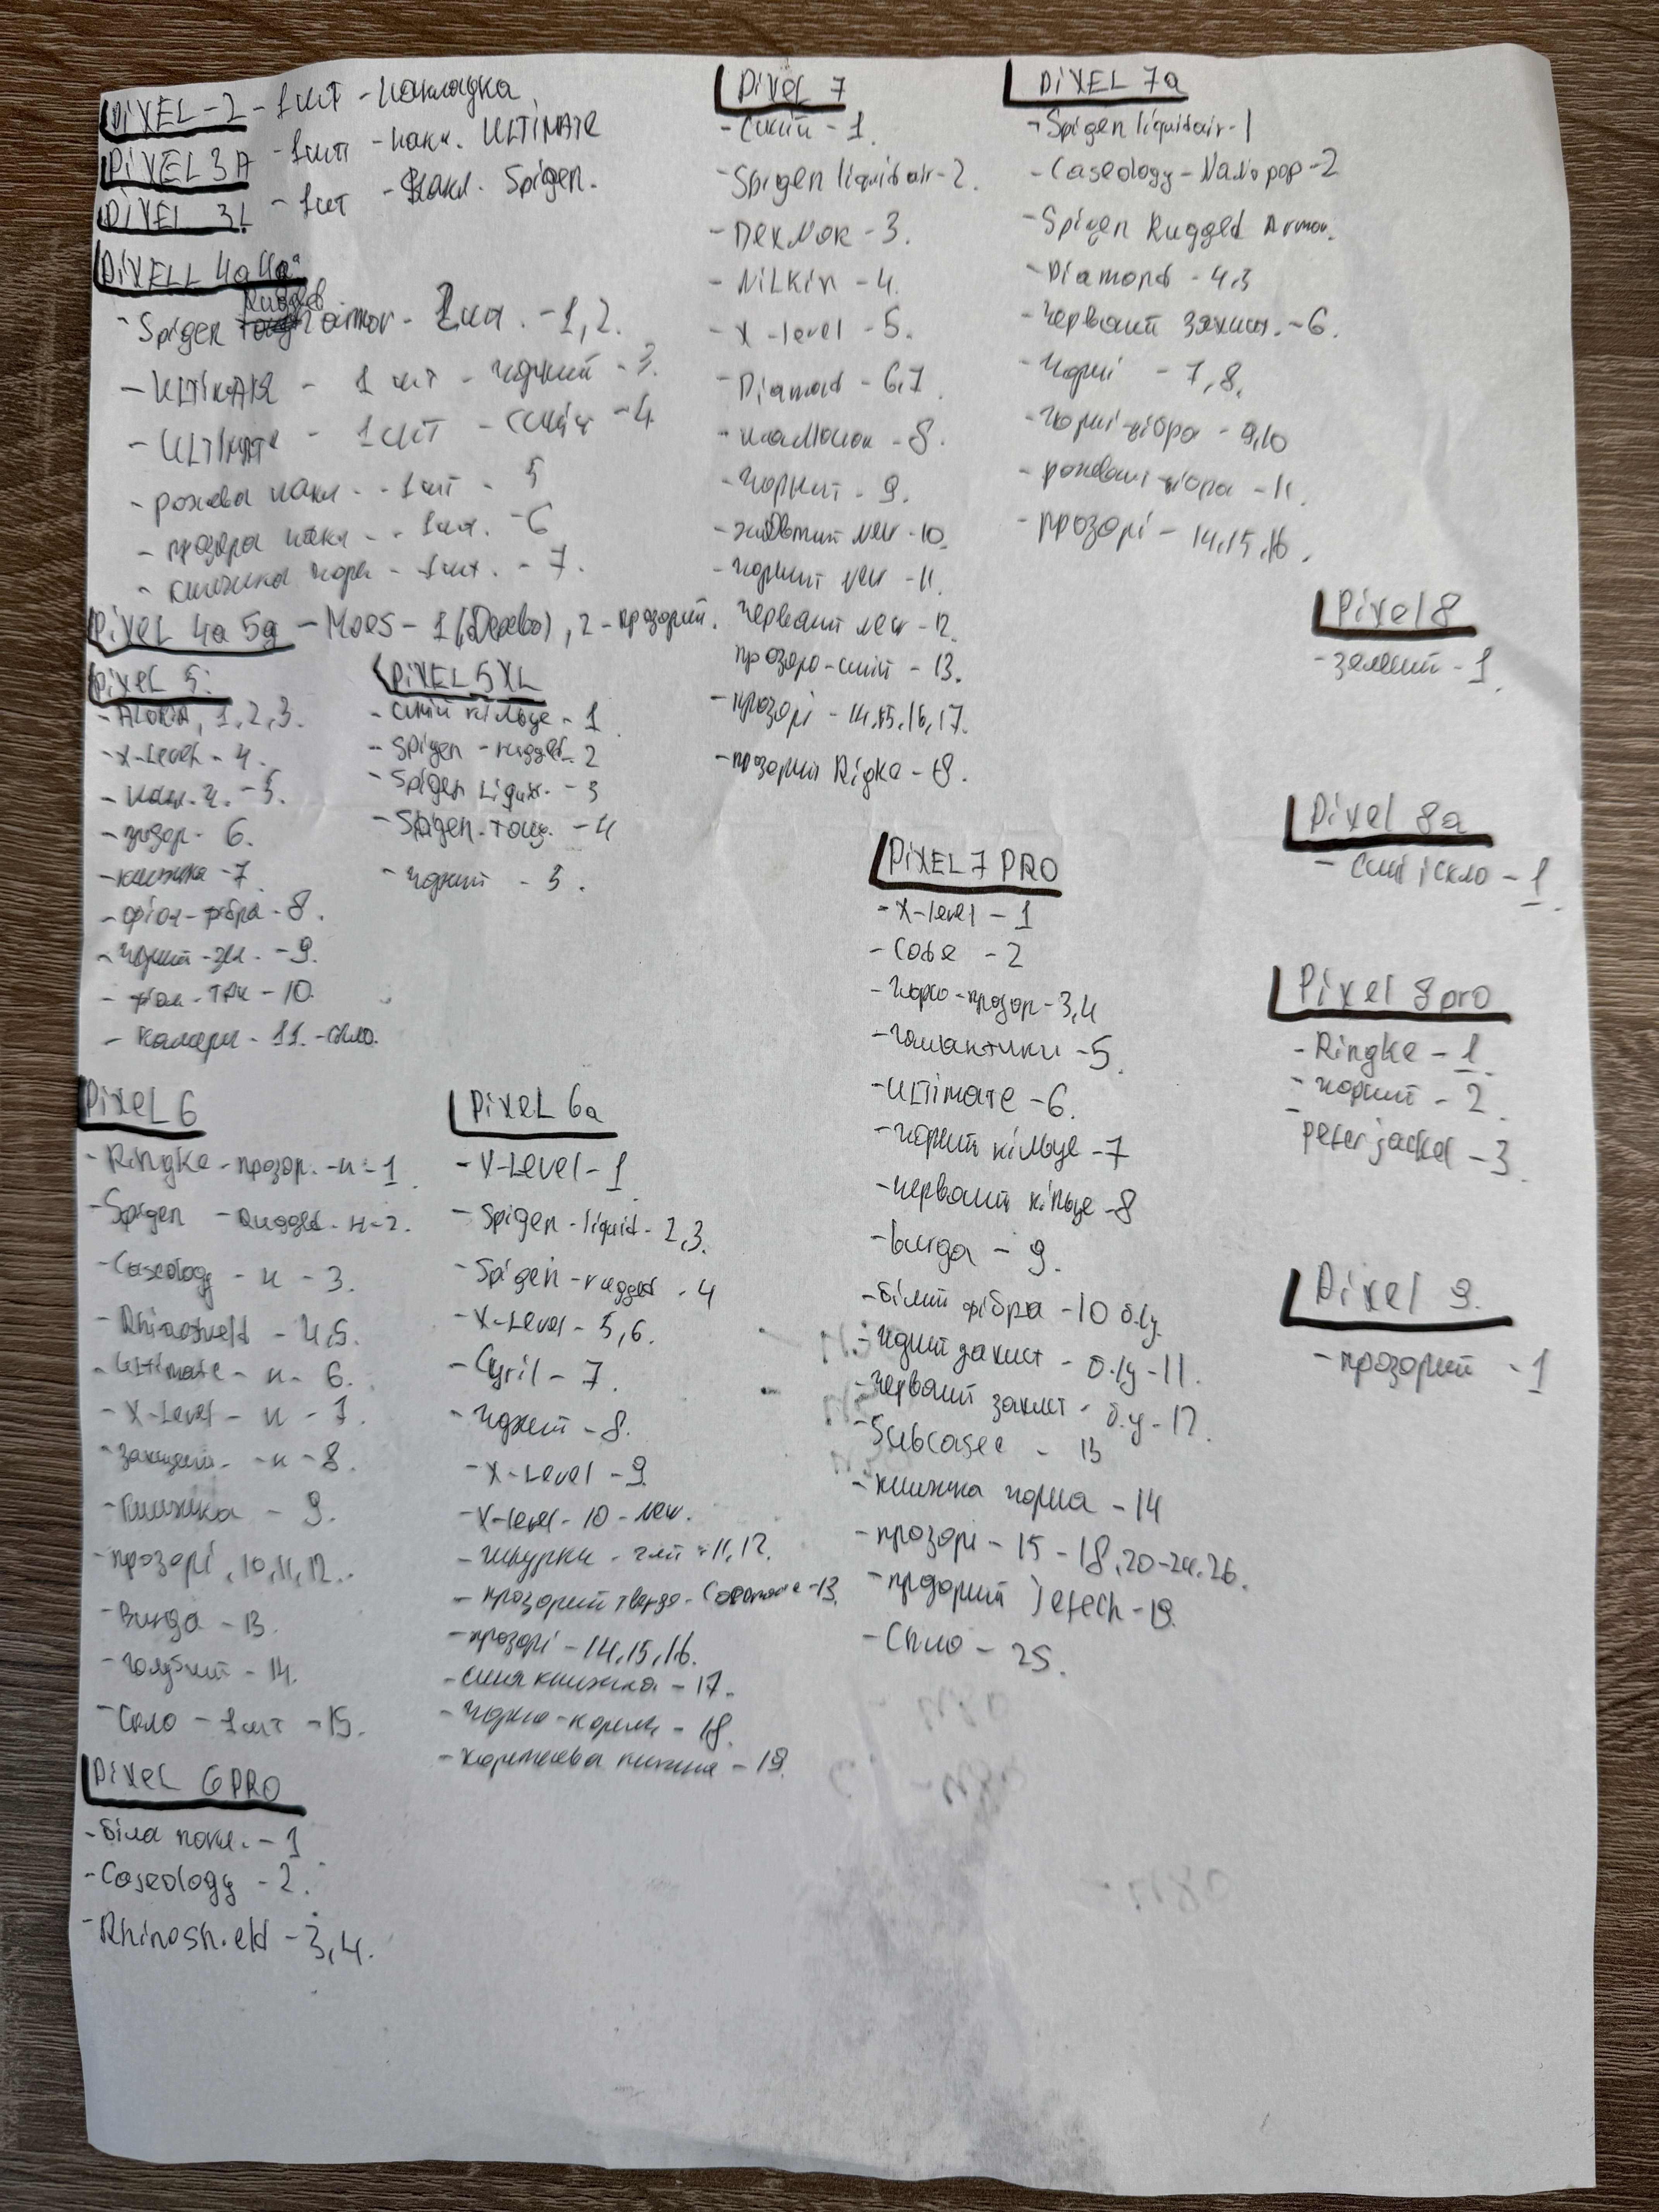 PIXEL-2 - 1шт - накладка
PIXEL 3A - 1шт - накл. ULTIMATE
PIXEL 3L - 1шт - накл. Spigen.
PIXELL 4a
- Spigen Rugged armor - 2шт. - 1,2.
- 1шт - чорний - 3.
- ULTIMATE - 1шт - синій - 4.
- рожева накл - - 1шт - 5
- прозора накл - - 1шт. - 6
- книжка чорн - 1шт. - 7.
Pixel 4a 5g - Moes - 1 , 2 - прозорий.
Pixel 5:
- 1, 2, 3.
- X-Level - 4.
- 5.
- прозор - 6.
- книжка - 7
- фіол - фібра - 8.
- чорний - 9.
- 10.
- камери - 11. - скло.
PIXEL 5XL
- синій кільце - 1
- Spigen - rugged - 2
- Spigen Liquid. - 3
- Spigen - Toug. - 4
- чорний - 5.
PIXEL 6
- Ringke - прозор. - н - 1.
- Spigen - Rugged - н - 2.
- Caseology - н - 3.
- Rhinoshield - 4,5.
- Ultimate - н - 6.
- X-Level - н - 7.
- - н - 8.
- Книжка - 9.
- прозорі, 10, 11, 12.
- Burga - 13.
- голубий - 14.
- Скло - 1шт - 15.
PIXEL 6PRO
- біла - 1
- Caseology - 2.
- Rhinoshield - 3,4.
PIXEL 6a
- X-Level - 1.
- Spigen - liquid - 2,3.
- Spigen - rugged - 4
- X-Level - 5,6.
- Cyril - 7.
- чорний - 8.
- X-Level - 9
- X-level - 10 - new.
- 11, 12.
- прозорий твердо - 13.
- прозорі - 14, 15, 16.
- синя книжка - 17.
- чорно - 18.
- коричнева книжка - 19.
Pixel 7
- Синій - 1.
- Spigen liquid air - 2.
- Dexnor - 3.
- Nilkin - 4.
- X-level - 5.
- Diamond - 6,7.
- 8.
- чорний - 9.
- жовтий new - 10.
- чорний new - 11.
- червоний new - 12.
прозоро-синій - 13.
- прозорі - 14,15,16,17.
- прозорий Rigke - 18.
PIXEL 7 PRO
- X-level - 1
- Cobe - 2
- чорно-прозор - 3,4
- 5.
- ULTIMATE - 6.
- чорний кільце - 7
- червоний кільце - 8
- burga - 9.
- білий фібра - 10 б.у.
- чорний захист - б.у - 11.
- червоний захист - б.у - 12.
- Subcasee - 13
- книжка чорна - 14
- прозорі - 15 - 18, 20-24, 26.
- прозорий Jetech - 19.
- Скло - 25.
PIXEL 7a
- Spigen liquidair - 1
- Caseology - Nano pop - 2
- Spigen Rugged Armor.
- Diamond - 4,3
- червоний захист. - 6.
- Чорні - 7, 8.
- Чорні-фібра - 9,10
- рожеві фібра - 11.
- прозорі - 14,15,16.
Pixel 8
- зелений - 1.
Pixel 8a
- синій скло - 1.
Pixel 8pro
- Ringke - 1.
- чорний - 2.
- peter jackel - 3.
Pixel 9.
- прозорий - 1